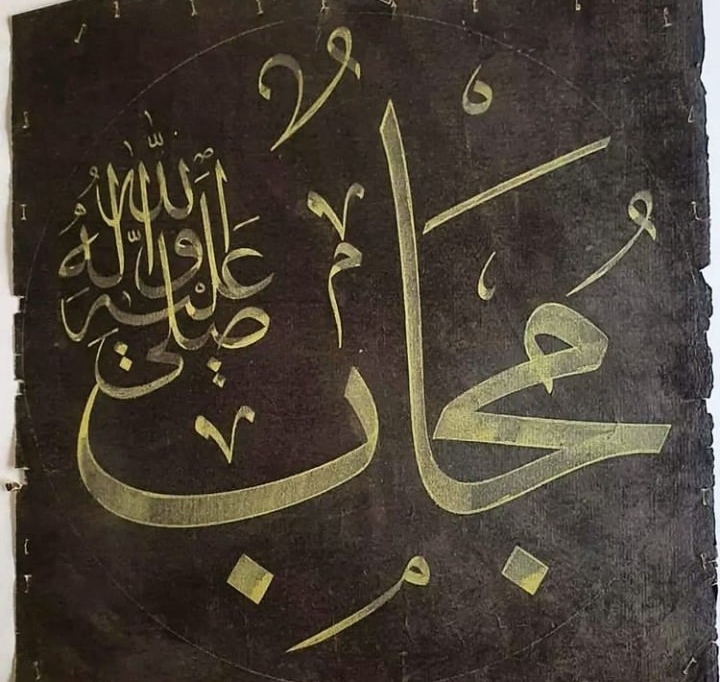 مُجَابٌ
صلى الله عليه وآله